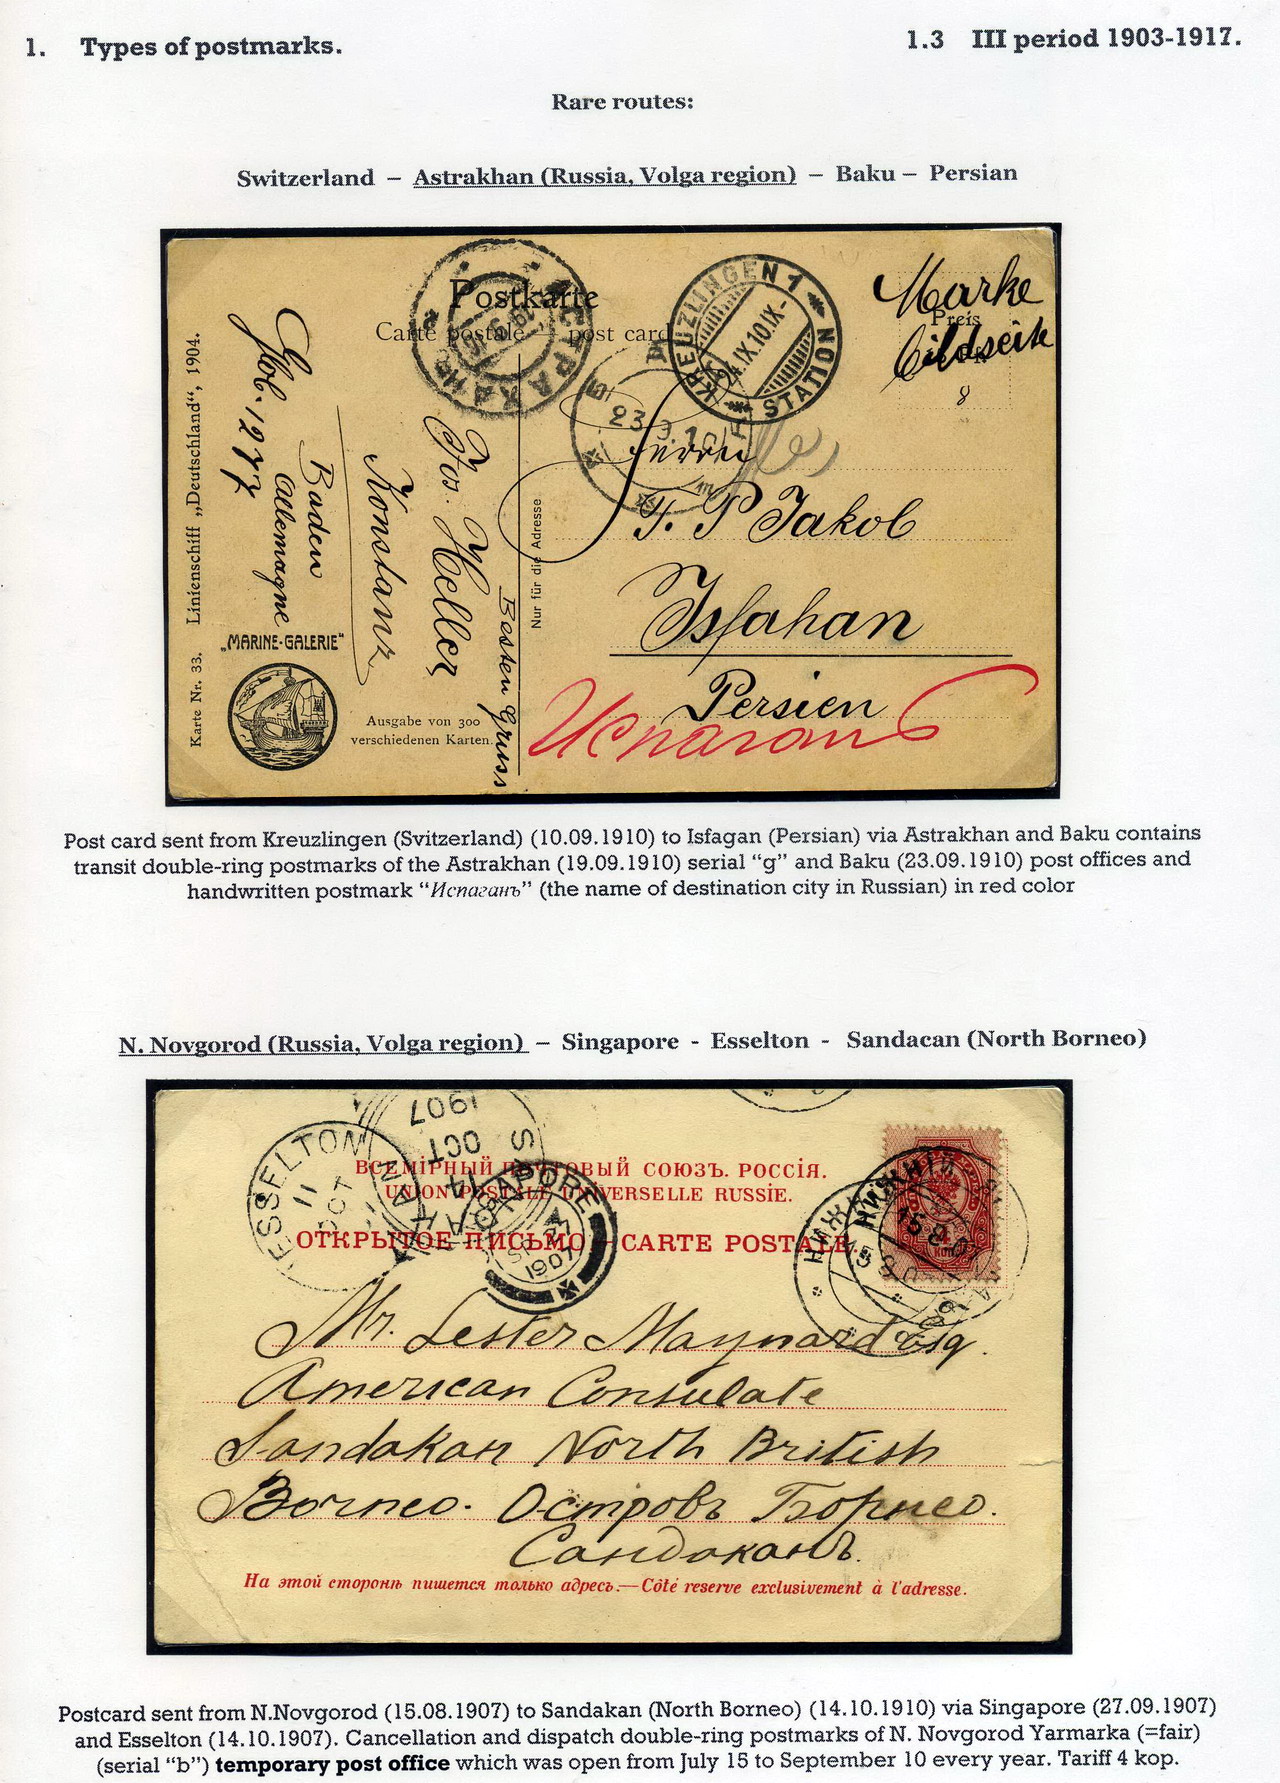 1. Types of postmarks.
1.3 III period 1903-1917.
Rare routes:
Switzerland – Astrakhan (Russia, Volga region) – Baku – Persian
Postkarte
Carte postale — post card
АСТРАХАНЬ
19 9 10
KREUZLINGEN 1
STATION
IX.10.IX-
23.9.10
Marke
Bildseite
Preis
8
Linienschiff „Deutschland“, 1904.
Karte Nr. 33.
„MARINE-GALERIE“
Ausgabe von 300
verschiedenen Karten.
Baden
Allemagne
Konstanz
Jos. Heller
Besten Gruss
Nur für die Adresse
Herrn
T. P Jakob
Isfahan
Persien
Испагань
Post card sent from Kreuzlingen (Svitzerland) (10.09.1910) to Isfagan (Persian) via Astrakhan and Baku contains
transit double-ring postmarks of the Astrakhan (19.09.1910) serial “g” and Baku (23.09.1910) post offices and
handwritten postmark “Испаганъ” (the name of destination city in Russian) in red color
N. Novgorod (Russia, Volga region) – Singapore - Esselton - Sandacan (North Borneo)
JESSELTON
11
OCT
14
OCT
1907
SINGAPORE
SP 27
1907
НИЖНІЙ
15 8 07
ВСЕМІРНЫЙ ПОЧТОВЫЙ СОЮЗЪ. РОССІЯ.
UNION POSTALE UNIVERSELLE RUSSIE.
ОТКРЫТОЕ ПИСЬМО — CARTE POSTALE
Mr. Lester Maynard Esq.
American Consulate
Sandakan North British
Borneo. Островъ Борнео.
Сандаканъ.
На этой сторонѣ пишется только адресъ.—Côté reserve exclusivement à l'adresse.
Postcard sent from N.Novgorod (15.08.1907) to Sandakan (North Borneo) (14.10.1910) via Singapore (27.09.1907)
and Esselton (14.10.1907). Cancellation and dispatch double-ring postmarks of N. Novgorod Yarmarka (=fair)
(serial “b”) temporary post office which was open from July 15 to September 10 every year. Tariff 4 kop.